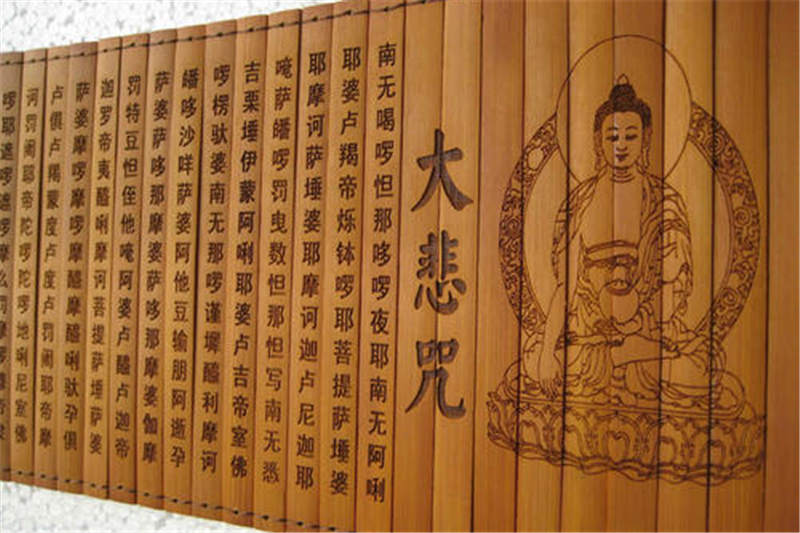 大悲咒
南无喝啰怛那哆啰夜耶南无阿唎
耶婆卢羯帝烁钵啰耶菩提萨埵婆
耶摩诃萨埵婆耶摩诃迦卢尼迦耶
唵萨皤啰罚曳数怛那怛写南无悉
吉栗埵伊蒙阿唎耶婆卢吉帝室佛
啰楞驮婆南无那啰谨墀醯利摩诃
皤哆沙咩萨婆阿他豆输朋阿逝孕
萨婆萨哆那摩婆萨哆那摩婆伽摩
罚特豆怛侄他唵阿婆卢醯卢迦帝
迦罗帝夷醯唎摩诃菩提萨埵萨婆
萨婆摩啰摩啰摩醯摩醯唎驮孕俱
卢俱卢羯蒙度卢度卢罚阇耶帝摩
诃罚阇耶帝陀啰陀啰地唎尼室佛
啰耶遮啰遮啰摩么罚摩